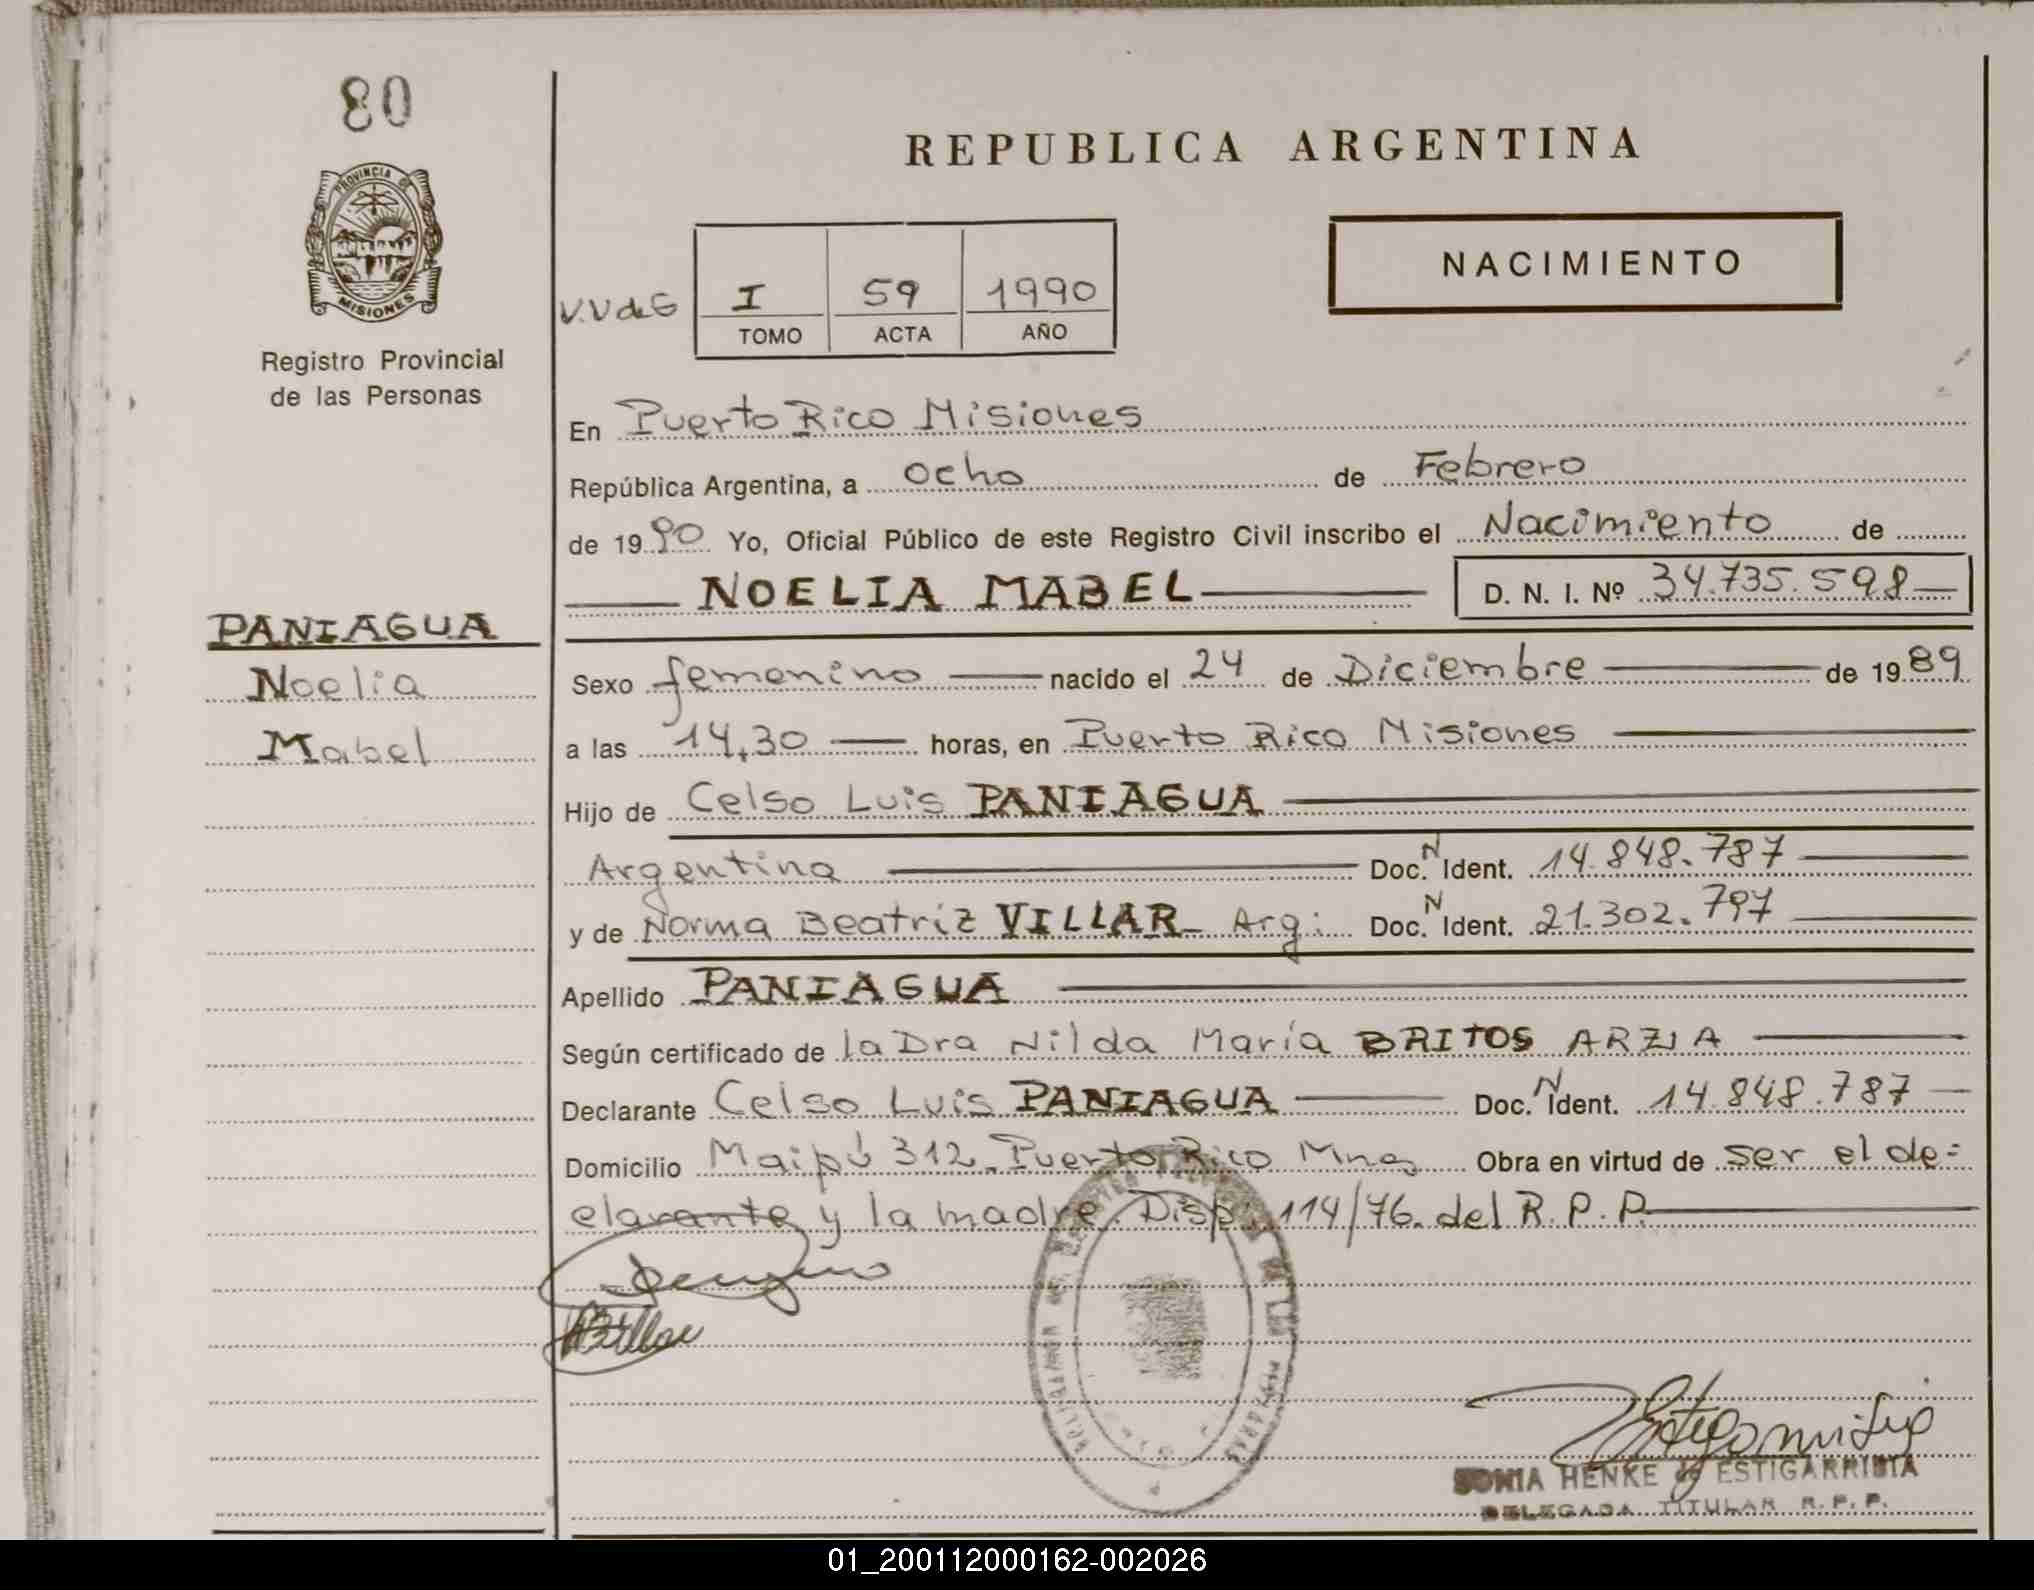 80
PROVINCIA DE
MISIONES
Registro Provincial
de las Personas
PANIAGUA
Noelia
Mabel
REPUBLICA ARGENTINA
NACIMIENTO
V.V de G
I 59 1990
TOMO ACTA AÑO
En Puerto Rico Misiones
República Argentina, a ocho de Febrero
de 1990 Yo, Oficial Público de este Registro Civil inscribo el Nacimiento de
NOELIA MABEL D. N. I. Nº 34.735.598
Sexo femenino nacido el 24 de Diciembre de 1989
a las 14,30 horas, en Puerto Rico Misiones
Hijo de Celso Luis PANIAGUA
Argentina Doc. N Ident. 14.848.787
y de Norma Beatriz VILLAR Arg. Doc. N Ident. 21.302.797
Apellido PANIAGUA
Según certificado de la Dra Nilda María BRITOS ARZA
Declarante Celso Luis PANIAGUA Doc. N Ident. 14.848.787
Domicilio Maipú 312 Puerto Rico Mnes Obra en virtud de ser el de=
clarante y la madre. Disp. 114/76 del R.P.P.
SONIA HENKE de ESTIGARRIBIA
DELEGADA TITULAR R.P.P.
01_200112000162-002026